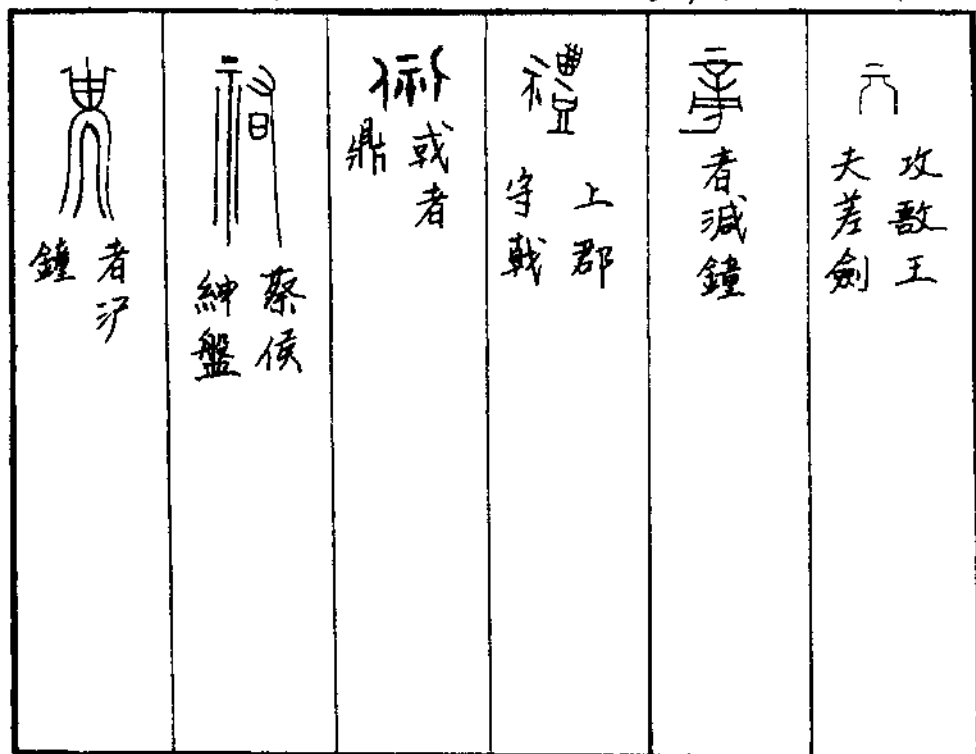 元
攻敔王
夫差劍
者減鐘
禮
上郡
守戟
或者
鼎
蔡侯
紳盤
者汈
鐘